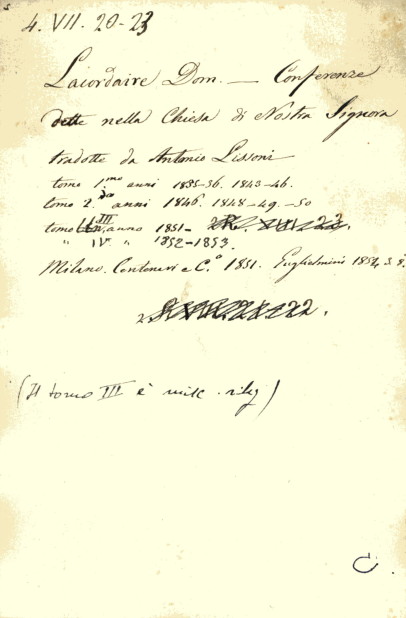 4. VII. 20-23
Lacordaire Dom. — Conferenze
dette nella Chiesa di Nostra Signora
tradotte da Antonio Lissoni
tomo 1.mo anni 1835-36. 1843-46.
tomo 2.do anni 1846. 1848-49-50
tomo III anno 1851-
" IV " 1852-1853.
Milano. Centenari e C.o 1851. Guglielmini 1854,
(Il tomo III è
C.